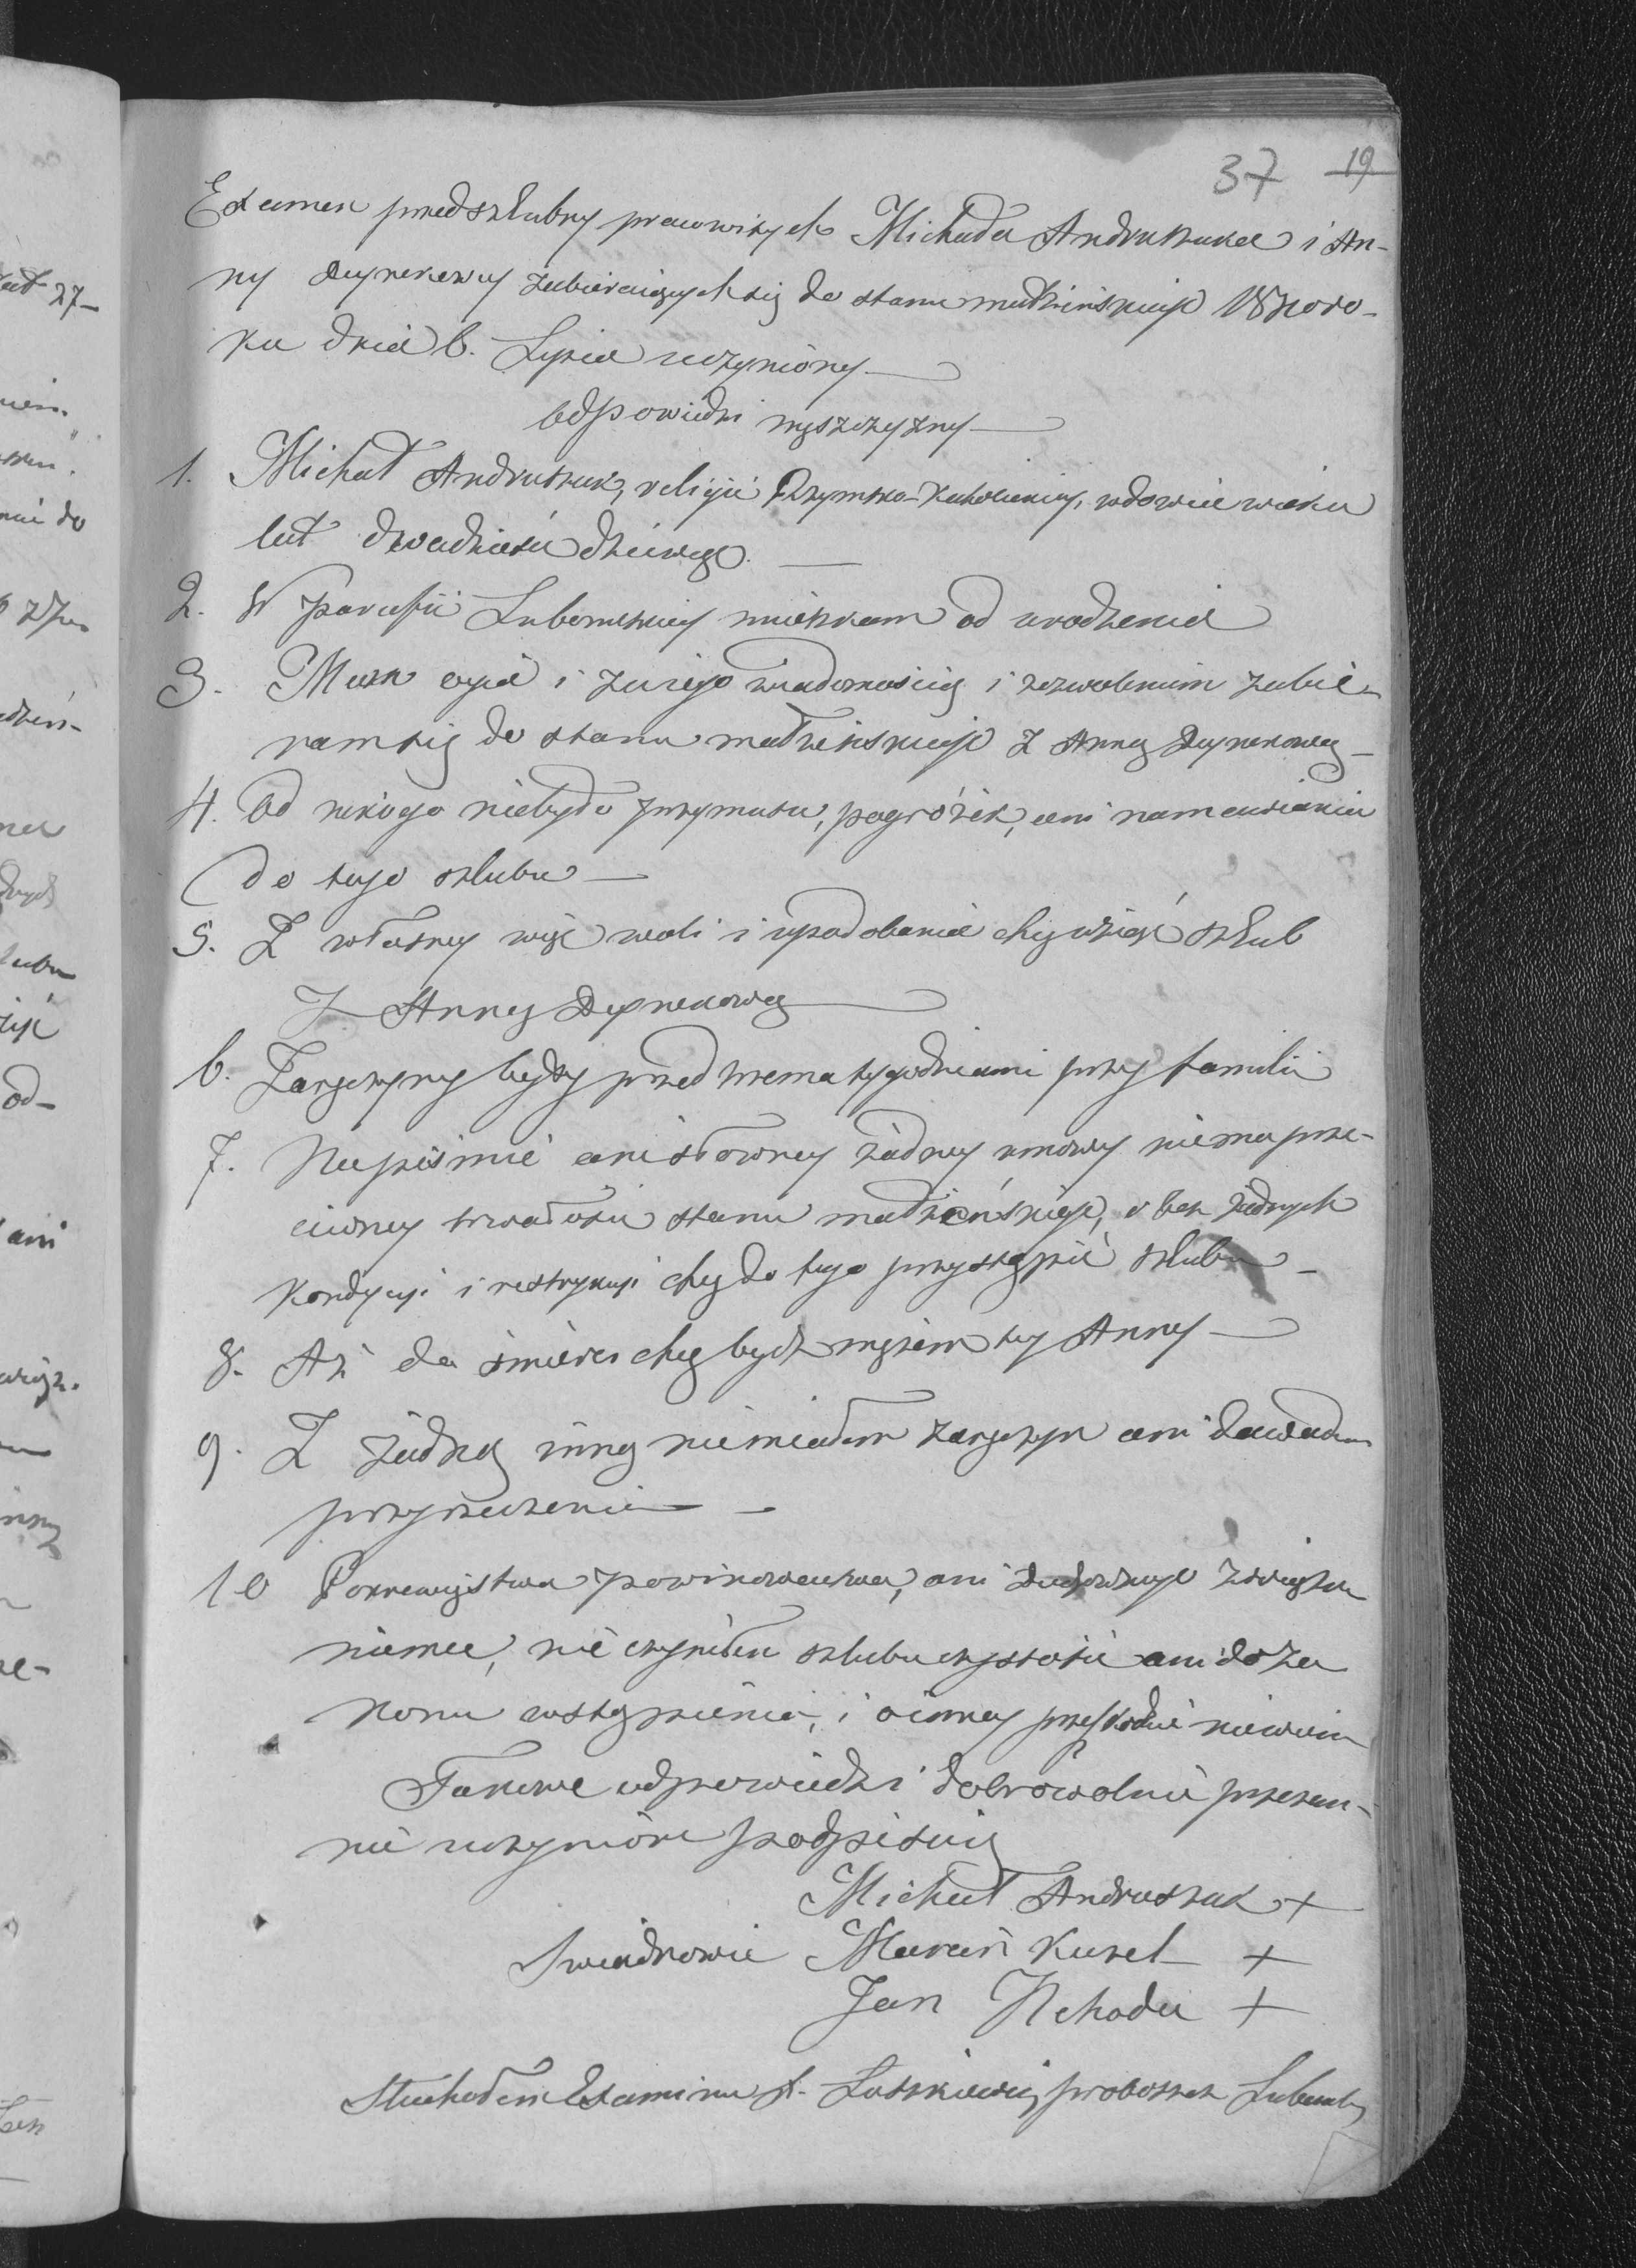 37 19
Examen przedszlubny pracowitych Michała Andruszuka i An-
ny Deynekowy zabieraiących się do stanu małżeńskiego 18
ku dnia 6. Lipca uczyniony
odpowiedzi męszczyzny
1. Michał Andruszuk, religii Rzymsko-Katolickiey, wdowiec wieku
lat dwadzieścia dziewięć.
2. W parafii Lubomlskiey mieszkam od urodzenia
3. Mam oyca i za iego wiadomością i zezwoleniem zabie-
ram się do stanu małżeńskiego z Anną Deynekową
4. Od nikogo niebyło przymusu, pogrózek, ani namawiania
do tego szlubu
5. Z własney więc woli i upodobania chcę wziąść szlub
Z Anną Deynekową
6. Zaręczyny były przed trema tygodniami przy familii
7. Na piśmie ani słowney żadney umowy niema prze-
ciwney trwałości stanu małżeńskiego, i bez żadnych
kondycyi i restrykcyi chcę do tego przystąpić szlubu
8. Aż do śmierci chcę bydź mężem tey Anny
9. Z żadną inną niemiałem zaręczyn ani dawałem
przyrzeczenia
10 Pokrewieństwa powinowactwa, ani duchownego związku
niema, nie czyniłem szlubu czystości ani do za
konu wstąpienia, i o inney przeszkodzie niewiem
Takowe odpowiedzi dobrowolnie przeze m-
nie uczynione podpisuię
Michał Andruszuk +
Swiadkowie Marcin Kuzel +
Jan +
Słuchałem Examinu X. proboszcz
27-
do
od-
ani